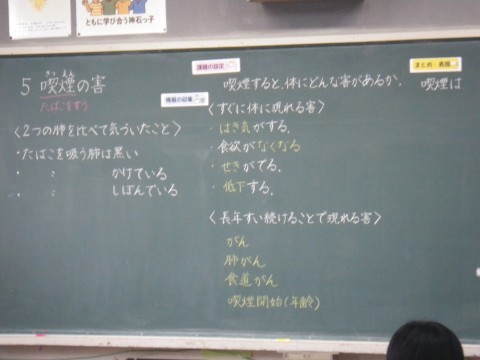 ともに学び合う神石っ子
5 喫煙の害
きつ えん
たばこをすう
〈2つの肺を比べて気づいたこと〉
・たばこを吸う肺は黒い
・ 〃 かけている
・ 〃 しぼんでいる
課題の設定
情報の収集
喫煙すると、体にどんな害があるか。
〈すぐに体に現れる害〉
・はき気がする。
・食欲がなくなる
・せきがでる。
・低下する。
〈長年すい続けることで現れる害〉
がん
肺がん
食道がん
喫煙開始(年齢)
まとめ・表現
喫煙は